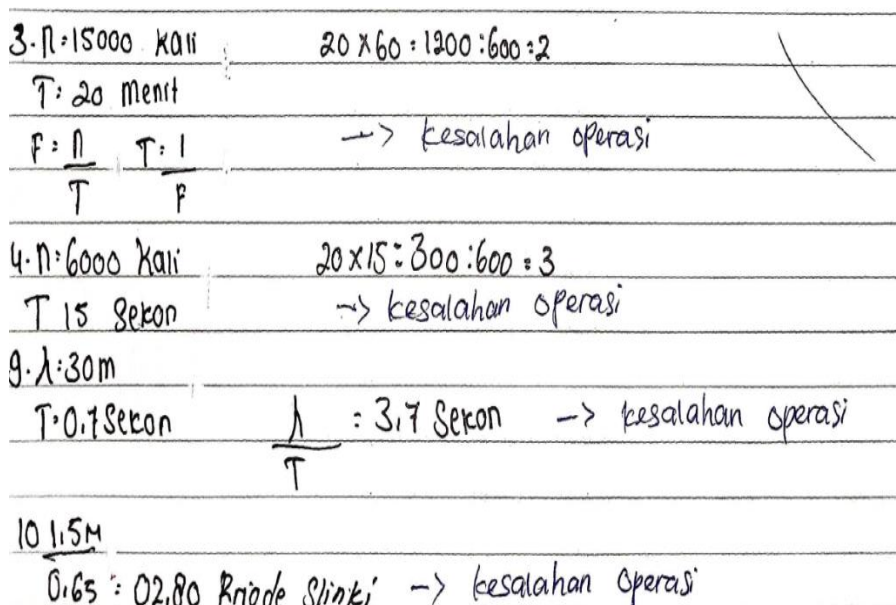 3. n : 15000 Kali 20 x 60 : 1200 : 600 : 2
T : 20 menit
F : n/T T : 1/F
-> kesalahan operasi
4. n : 6000 Kali 20 x 15 : 300 : 600 : 3
T 15 Sekon -> kesalahan operasi
9. λ : 30 m
T : 0,7 Sekon λ/T : 3,7 Sekon -> kesalahan operasi
10 1,5 M
0,65 : 02,80 Slinki -> kesalahan operasi